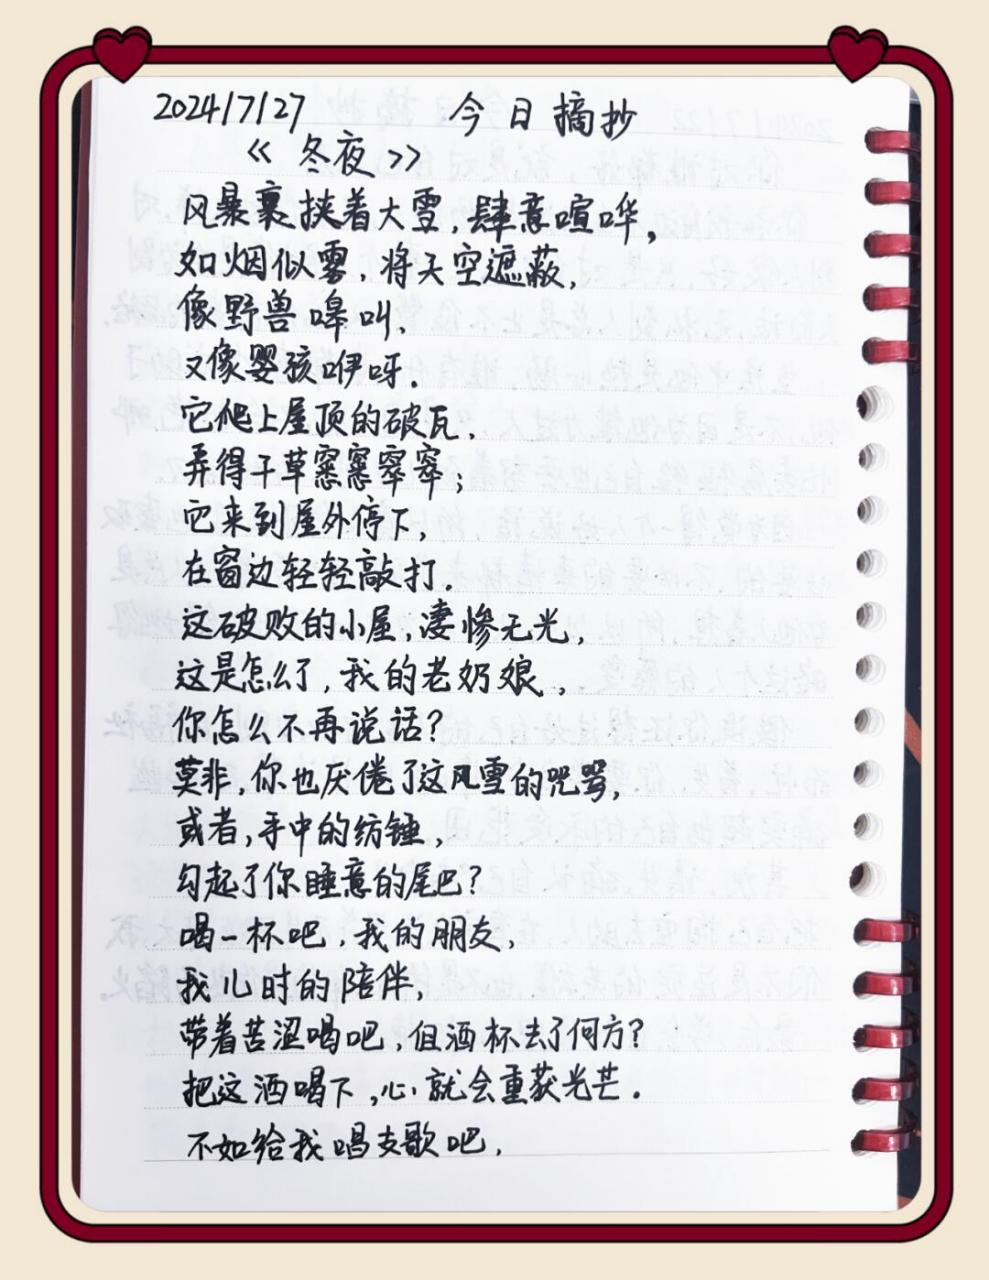 2024/7/27 今日摘抄
《冬夜》
风暴裹挟着大雪,肆意喧哗,
如烟似雾,将天空遮蔽,
像野兽嗥叫,
又像婴孩咿呀.
它爬上屋顶的破瓦,
弄得干草窸窸窣窣;
它来到屋外停下,
在窗边轻轻敲打.
这破败的小屋,凄惨无光,
这是怎么了,我的老奶娘,
你怎么不再说话?
莫非,你也厌倦了这风雪的咒骂,
或者,手中的纺锤,
勾起了你睡意的尾巴?
喝一杯吧,我的朋友,
我儿时的陪伴,
带着苦涩喝吧,但酒杯去了何方?
把这酒喝下,心就会重获光芒.
不如给我唱支歌吧,